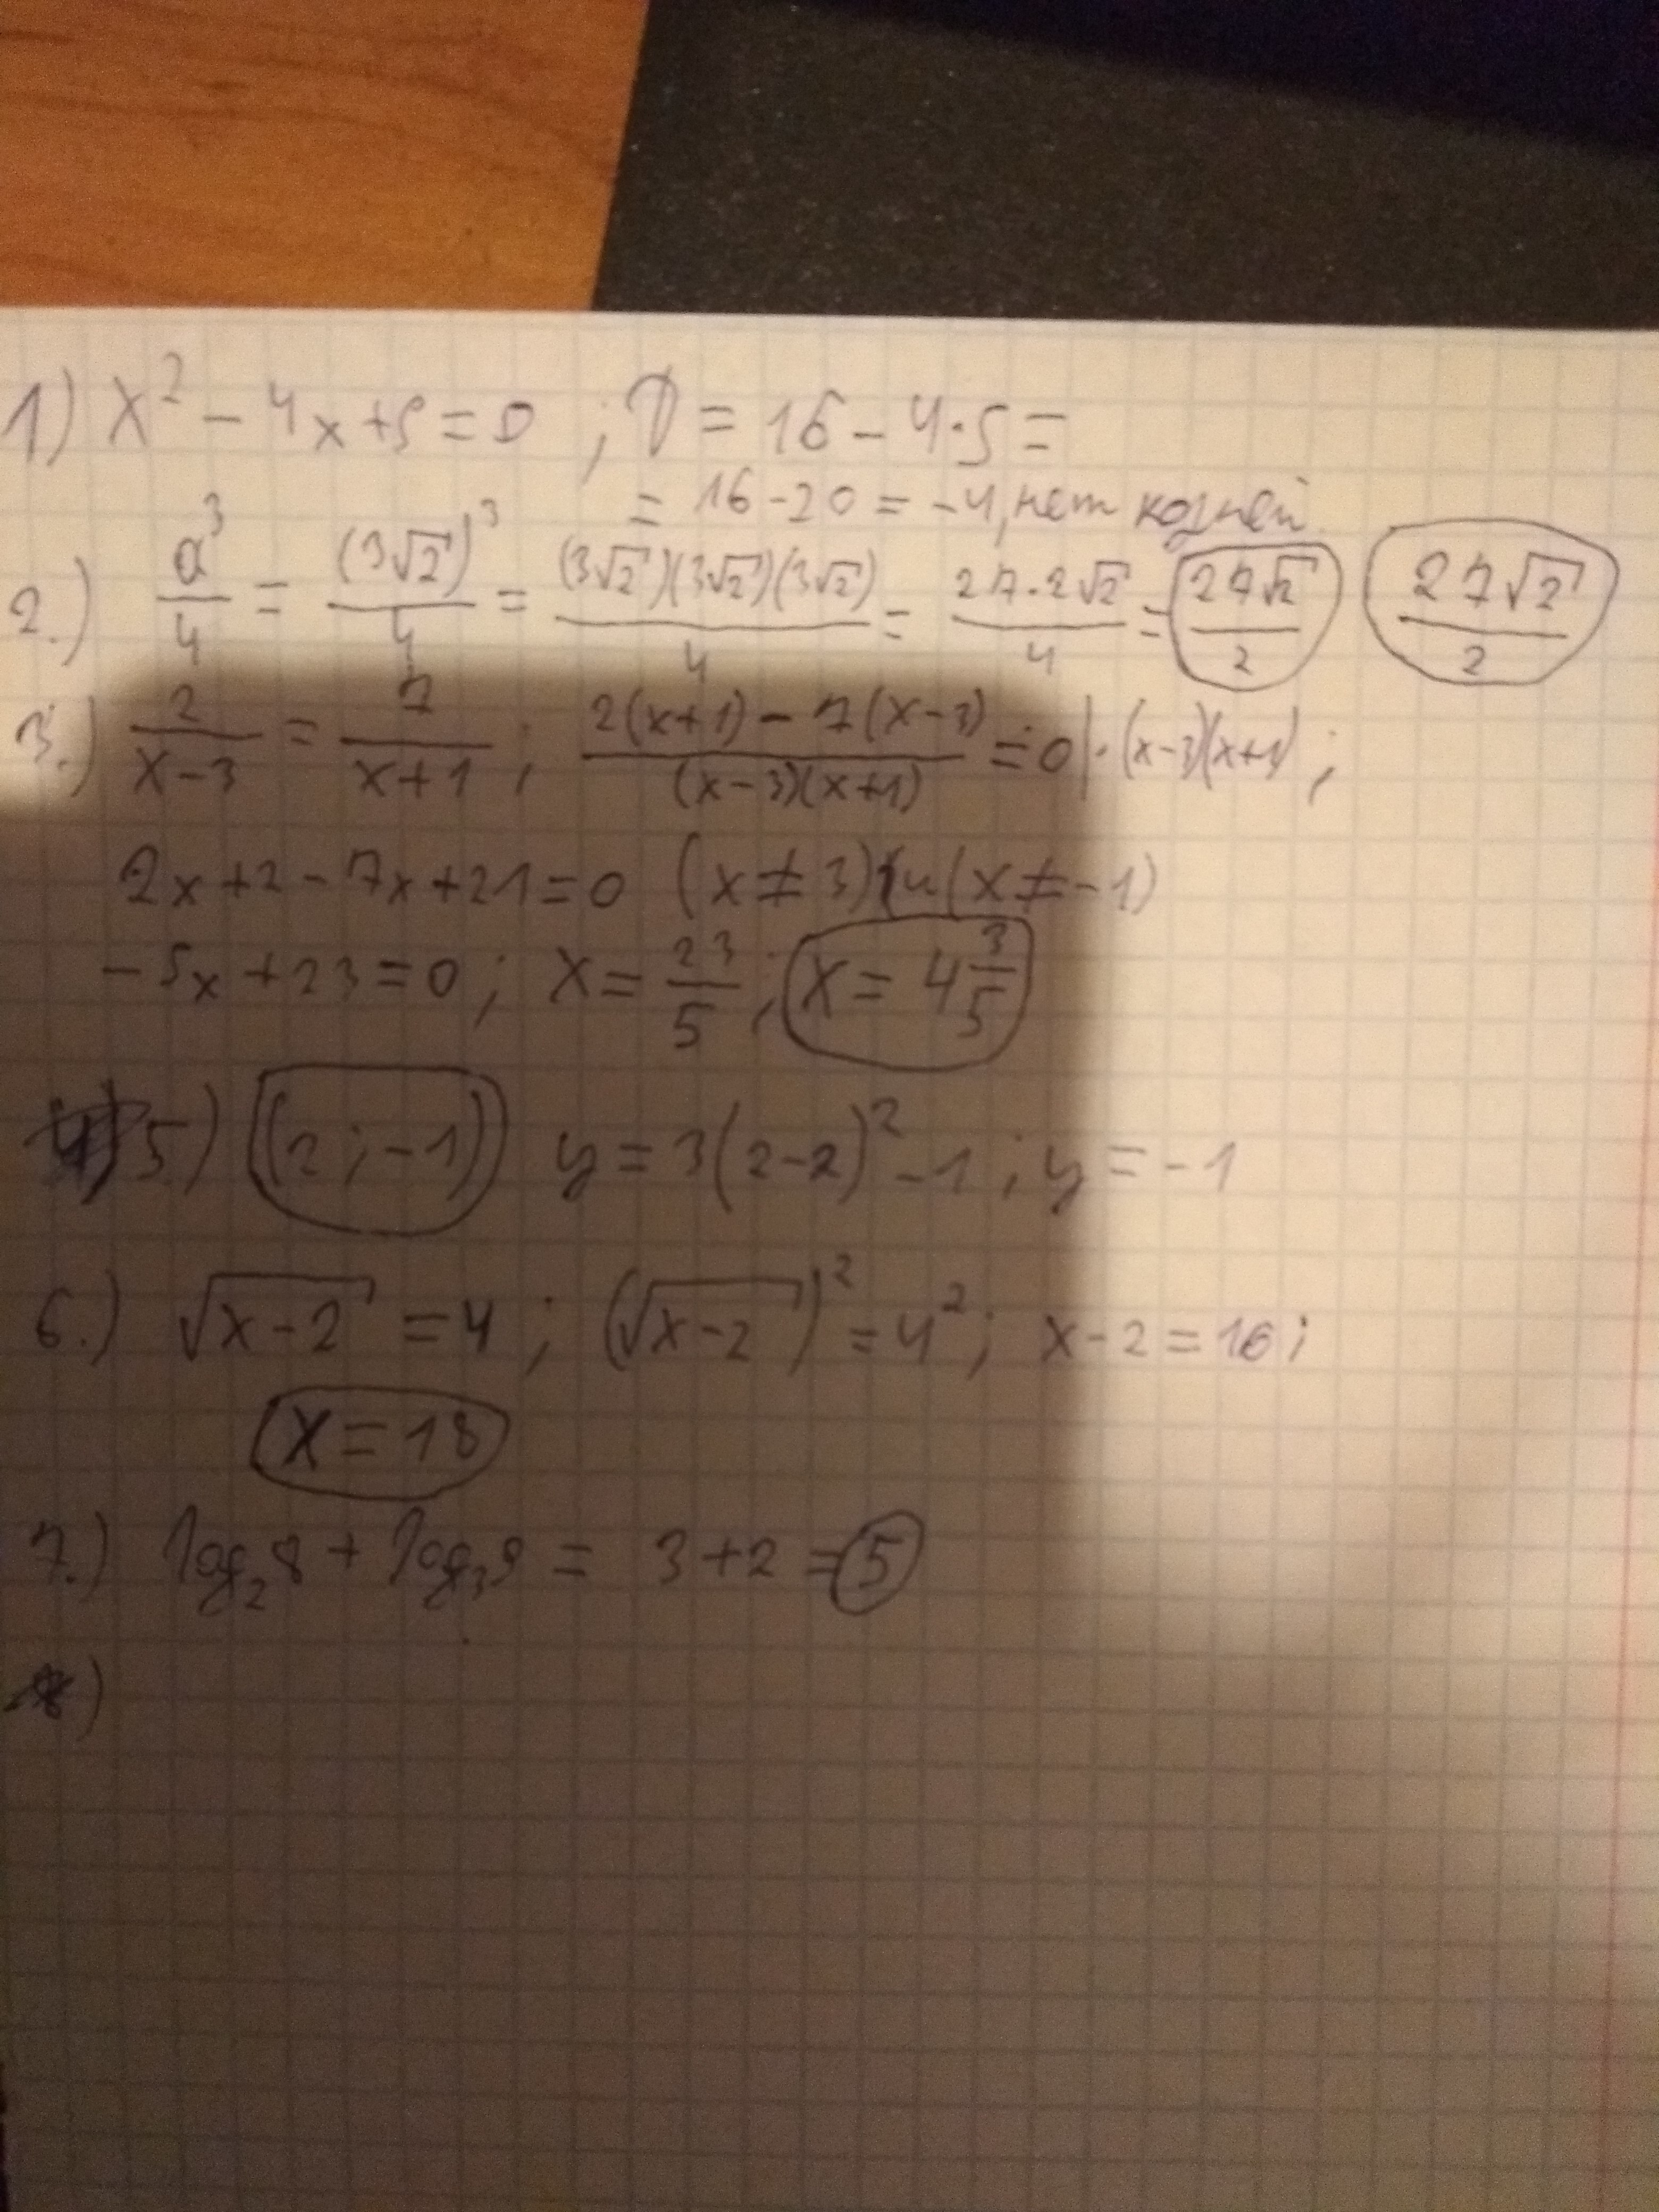 1) x² - 4x + 5 = 0 ; D = 16 - 4·5 =
= 16 - 20 = -4, нет корней
2.) a³/4 = (3√2)³/4 = (3√2)(3√2)(3√2)/4 = 27·2√2/4 = 27√2/2 27√2/2
3.) 2/(x-3) = 7/(x+1) ; (2(x+1) - 7(x-3))/((x-3)(x+1)) = 0 |·(x-3)(x+1) ;
2x + 2 - 7x + 21 = 0 (x ≠ 3) и (x ≠ -1)
-5x + 23 = 0 ; x = 23/5 ; x = 4 3/5
5.) (2 ; -1) y = 3(2-2)² - 1 ; y = -1
6.) √(x-2) = 4 ; (√(x-2))² = 4² ; x - 2 = 16 ;
x = 18
7.) log₂8 + log₃9 = 3 + 2 = 5